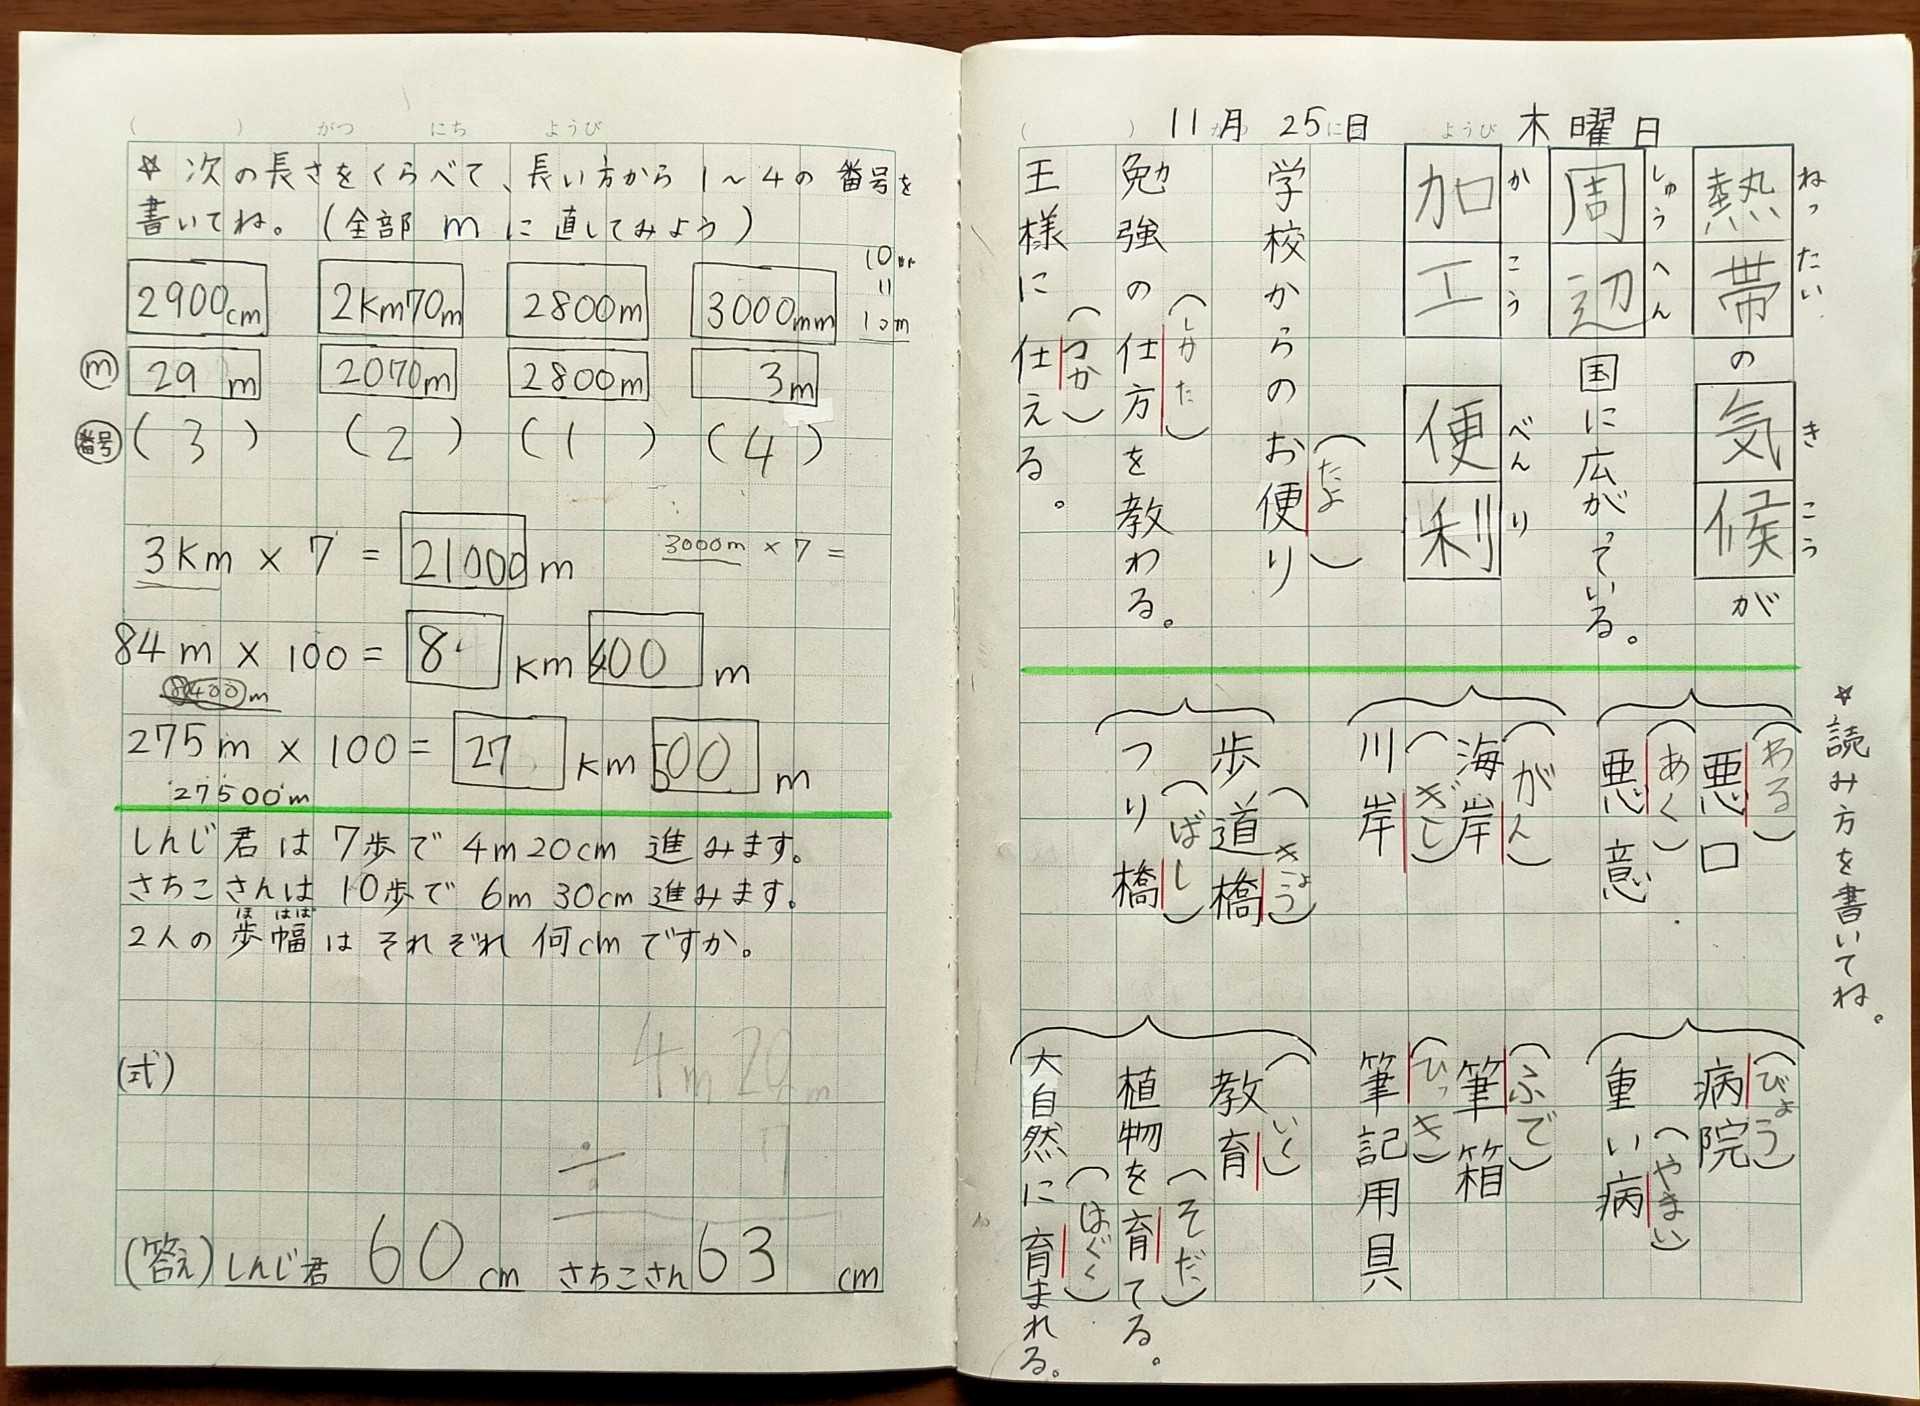 ( ) がつ にち ようび
☆ 次の長さをくらべて、長い方から1～4の番号を
書いてね。(全部 m に直してみよう)
10m
〃
10m
2900cm 2Km70m 2800m 3000mm
m 29 m 2070m 2800m 3m
番号 ( 3 ) ( 2 ) ( 1 ) ( 4 )
3Km × 7 = 21000 m 3000m × 7 =
84m × 100 = 8 km 400 m
8400m
275m × 100 = 27 km 500 m
27500m
しんじ君は 7歩で 4m20cm 進みます。
さちこさんは 10歩で 6m 30cm 進みます。
ほ はば
2人の歩幅はそれぞれ 何cmですか。
(式)
4m 20cm
÷ 7
(答え) しんじ君 60 cm さちこさん 63 cm
( ) 11月 25日 ようび 木曜日
ねっ たい き こう
熱帯の気候が
しゅう へん
周辺国に広がっている。
か こう べん り
加工 便利
(たよ)
学校からのお便り
(しかた)
勉強の仕方を教わる。
(つか)
王様に仕える。
☆読み方を書いてね。
(わる)
悪口
(あく)
悪意
(がん)
海岸
(ぎし)
川岸
(きょう)
歩道橋
(ばし)
つり橋
(びょう)
病院
(やまい)
重い病
(ふで)
筆箱
(ひっき)
筆記用具
(いく)
教育
(そだ)
植物を育てる。
(はぐく)
大自然に育まれる。